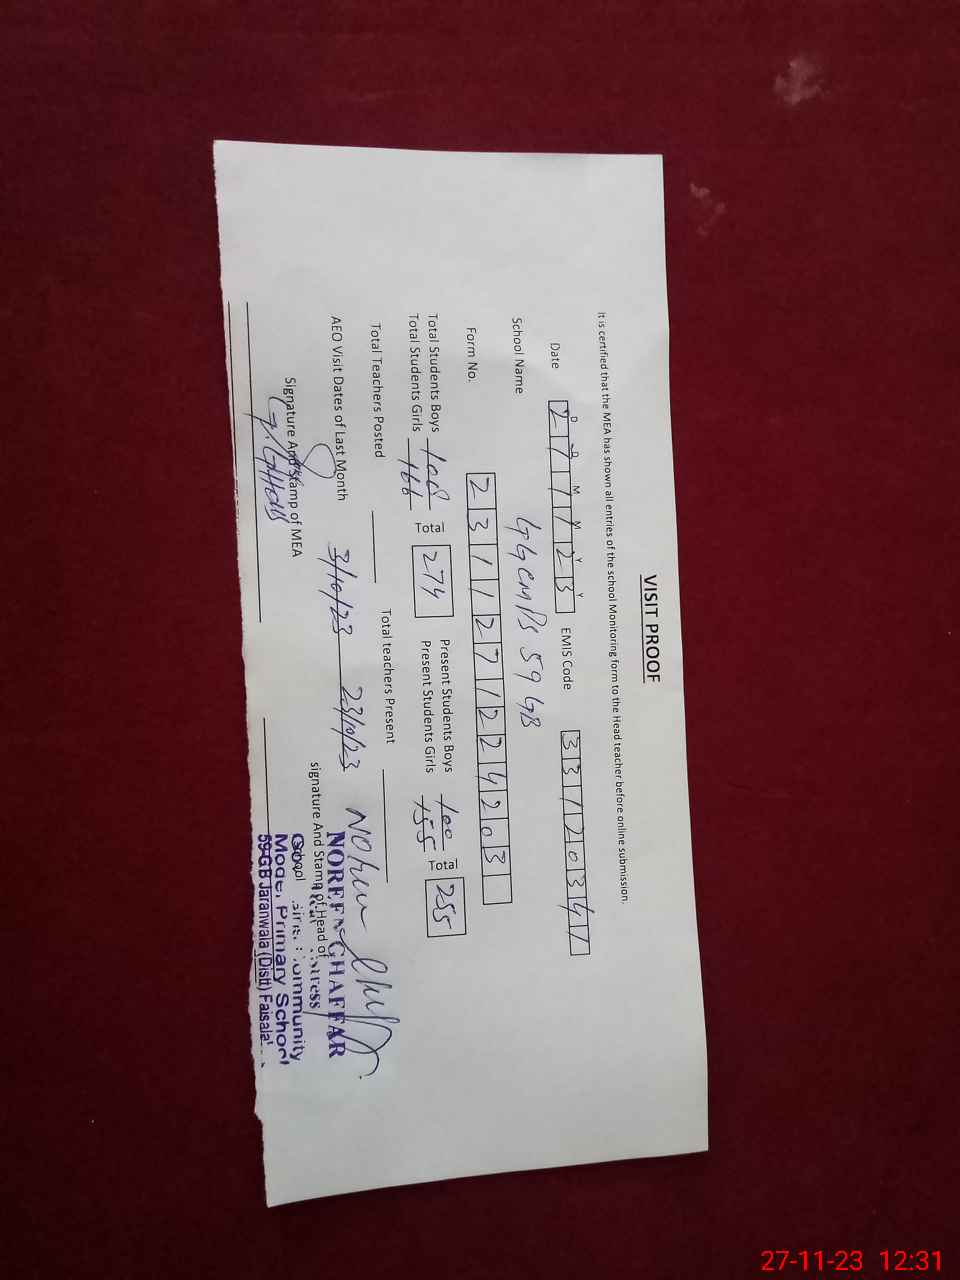 VISIT PROOF
It is certified that the MEA has shown all entries of the school Monitoring form to the Head teacher before online submission.
D D M M Y Y
Date 2 7 1 1 2 3 EMIS Code 3 3 1 2 0 3 4 1
School Name GGCMPS 59 GB
Form No. 2 3 1 1 2 7 1 2 2 4 2 0 3
Total Students Boys 108 Total 274 Present Students Boys 100 Total 255
Total Students Girls 166 Present Students Girls 155
Total Teachers Posted Total teachers Present
AEO Visit Dates of Last Month 3/10/23 23/10/23
Signature And Stamp of MEA signature And Stamp of Head of School
NOREEN GHAFFAR
Community
Model Primary School
59-GB Jaranwala (Distt) Faisala
27-11-23 12:31